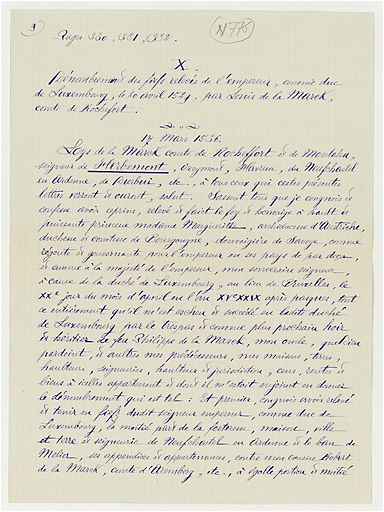 9
N 776
Pages 330, 331, 332.
X.
Dénombrement des fiefs relevés de l'empereur, comme duc
de Luxembourg, le 20 avril 1529, par Louis de la Marck,
comte de Rochefort.
14 Mars 1536.
Loys de la Marck comte de Rocheffort & de Montaku,
seigneur de Herbemont, du Neufchastel
en Ardenne, de etc., à tous ceux qui cestes présentes
lettres verront & ouront, salut. Savoir fais que je congnois &
confesse avoir reprins, relevé & faict le foy & homaige à haulte &
puissante princesse madame Margueritte, archiducesse d'Austriche,
duchesse & contesse de Bourgongne, douaigière de Savoye, comme
régente & gouvernante pour l'empereur en ses pays de par deça,
& comme à la majesté de l'empereur, mon souverain seigneur,
à cause de la duché de Luxembourg, au lieu de Bruxelles, le
XXe jour du mois d'apvril en l'an XVeXXIX après pasques, tout
ce entièrement qu'il m'est escheu & succédé en ladite duché
de Luxembourg par le trespas & comme plus prochain hoir
& héritier de feu Philippe de la Marck, mon oncle, quel en
& aultres mes prédécesseurs, mes maisons, terres,
haulteurs, seigneuries, haulteurs & jurisdiction, cens, rentes &
biens à icelles appartenant & dont il m'estoit enjoinct en donner
le dénombrement qui est tel : Et premier, congnois avoir relevé
& tenir en fief dudit seigneur empereur, comme duc de
Luxembourg, la moitié part de la forteresse, maison, ville
et terre & seigneurie de Neufchastel en Ardenne & le ban de
Mellier, ses appendices & appartenances, contre mon cousin Robert
de la Marck, comte d'Aremberg, etc., à égalle portion & moitié